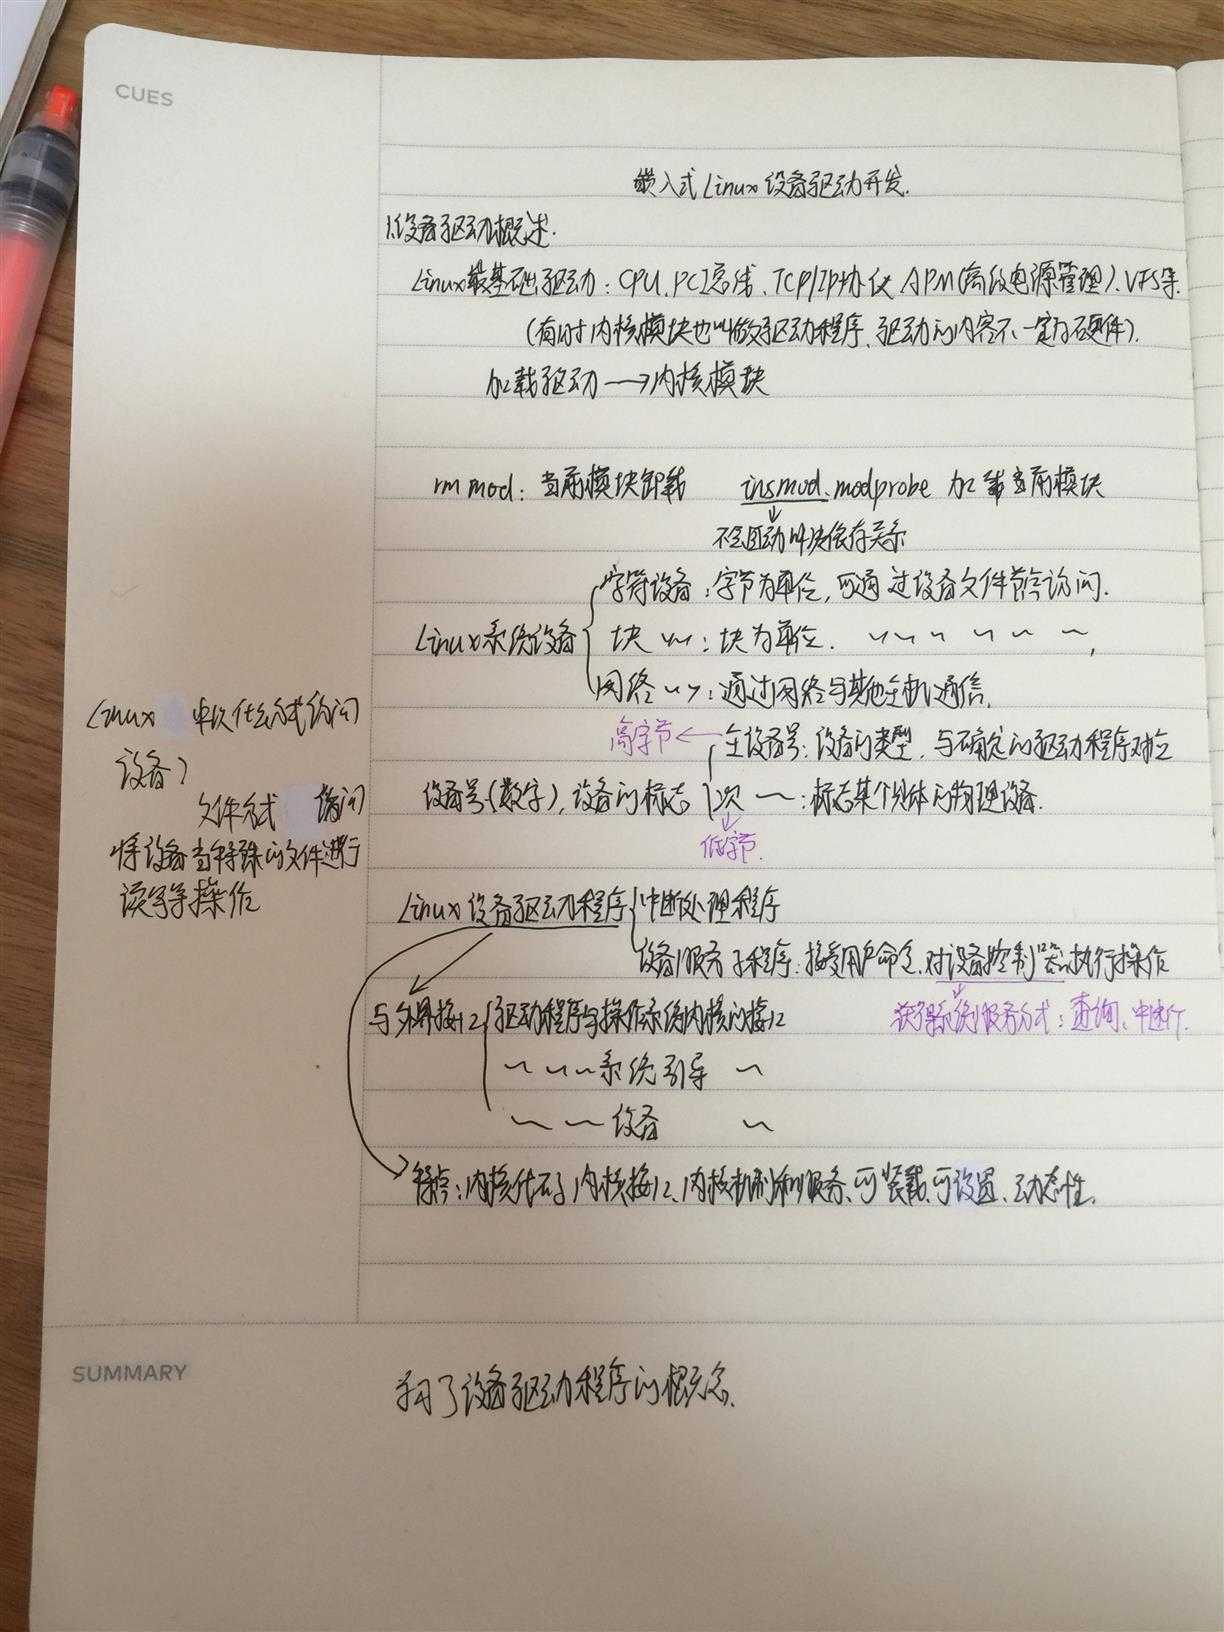 CUES
嵌入式Linux设备驱动开发.
1.设备驱动概述.
Linux最基础驱动：CPU、PCI总线、TCP/IP协议、APM(高级电源管理)、VFS等.
(有时内核模块也叫做驱动程序、驱动的内容不一定为硬件).
加载驱动→内核模块
rmmod：当前模块卸载 insmod、modprobe 加载当前模块
不会自动解决依存关系
字符设备：字节为单位，可通过设备文件节点访问.
Linux系统设备
块 〃：块为单位. 〃 〃 〃 〃 〃 〃,
网络 〃：通过网络与其他主机通信.
高字节 ← 主设备号：设备的类型，与确定的驱动程序对应
设备号(数字)，设备的标志
次 〃：标志某个具体的物理设备.
低字节.
Linux中以什么方式访问
设备？
文件方式 访问
将设备当特殊的文件进行
读写等操作
Linux设备驱动程序 中断处理程序
设备服务子程序：接受用户命令，对设备控制器执行操作
与外界接口 驱动程序与操作系统内核的接口
获得系统服务方式：查询、中断.
〃 〃 〃系统引导 〃
〃 〃设备 〃
特点：内核代码、内核接口、内核机制和服务、可装载、可设置、动态性.
SUMMARY
学习了设备驱动程序的概念.